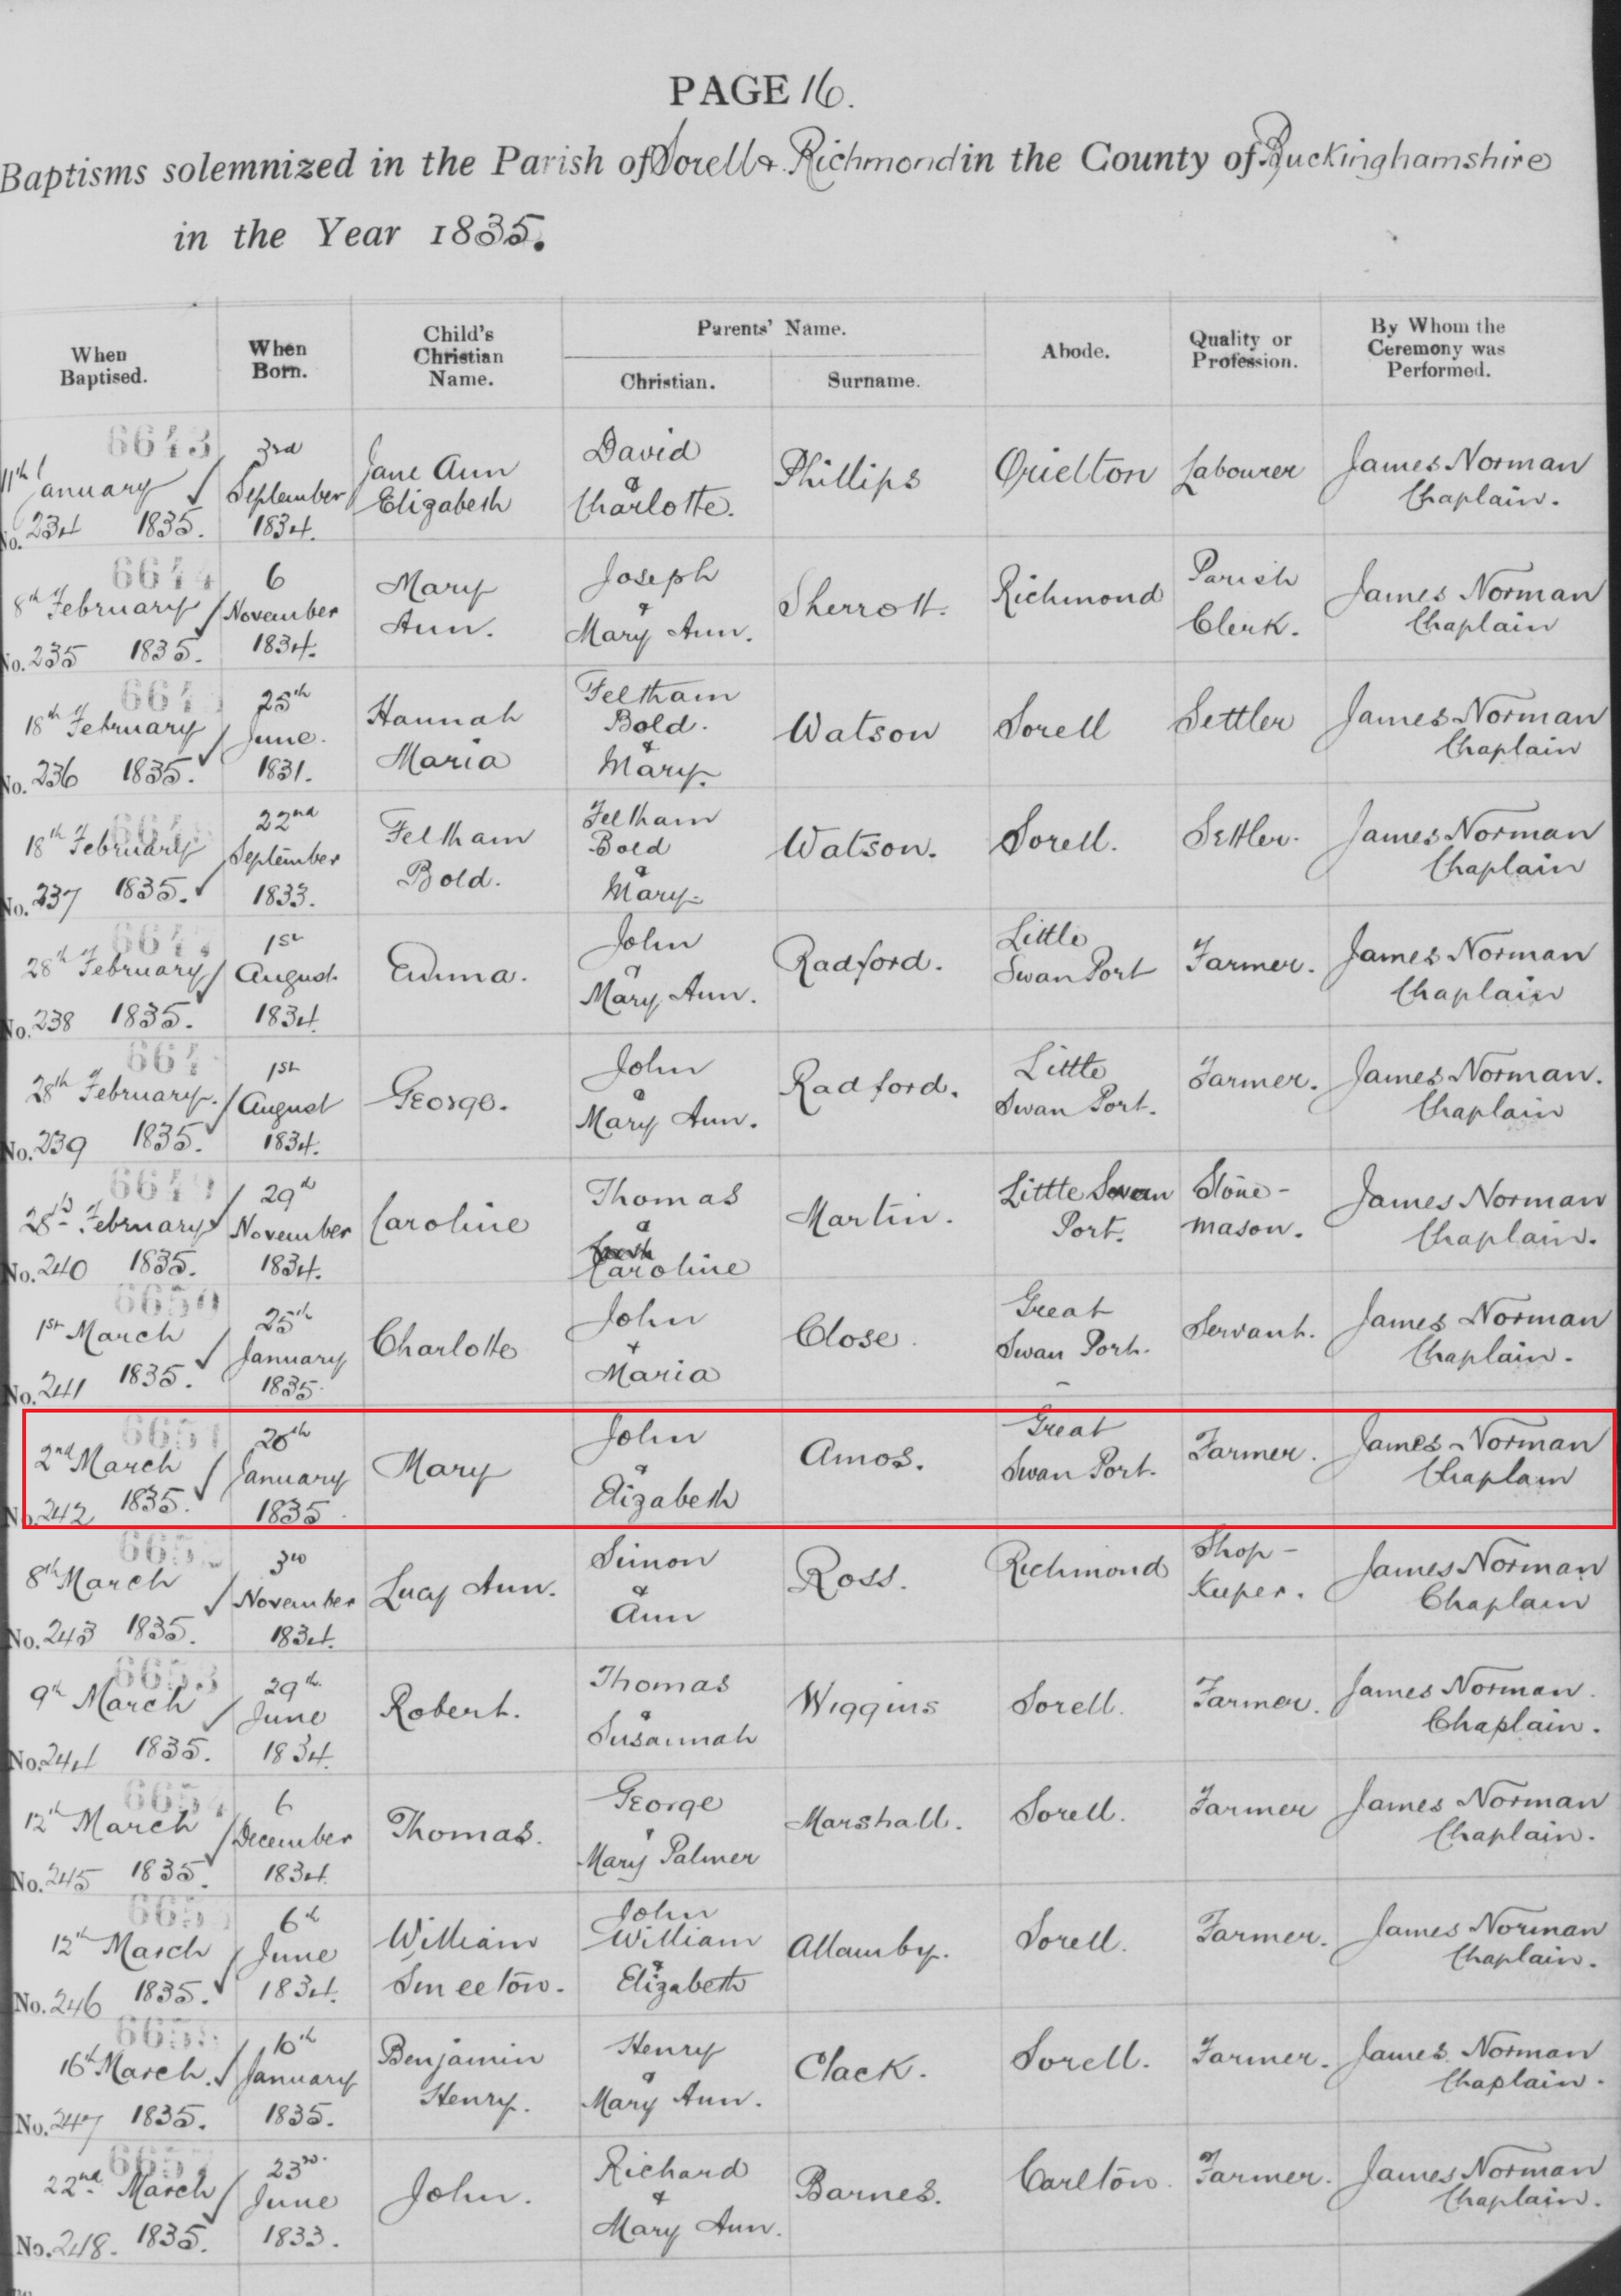 PAGE 16.
Baptisms solemnized in the Parish of Sorell & Richmond in the County of Buckinghamshire
in the Year 1835.
When Baptised.
When Born.
Child's Christian Name.
Parents' Name.
Christian.
Surname.
Abode.
Quality or Profession.
By Whom the Ceremony was Performed.
6643
11th January 1835. No. 234
3rd September 1834.
Jane Ann Elizabeth
David & Charlotte.
Phillips
Orielton
Labourer
James Norman Chaplain.
6644
8th February 1835. No. 235
6 November 1834.
Mary Ann.
Joseph & Mary Ann.
Sherrott.
Richmond
Parish Clerk.
James Norman Chaplain
18th February 1835. No. 236
25th June. 1831.
Hannah Maria
Feltham Bold. & Mary.
Watson
Sorell
Settler
James Norman Chaplain
18th February 1835. No. 237
22nd September 1833.
Feltham Bold.
Feltham Bold & Mary.
Watson.
Sorell.
Settler.
James Norman Chaplain
28th February 1835. No. 238
1st August. 1834.
Emma.
John & Mary Ann.
Radford.
Little Swan Port
Farmer.
James Norman Chaplain
28th February. 1835. No. 239
1st August 1834.
George.
John & Mary Ann.
Radford.
Little Swan Port.
Farmer.
James Norman. Chaplain
6649
28th February 1835. No. 240
29th November 1834.
Caroline
Thomas & Caroline
Martin.
Little Swan Port.
Stone-mason.
James Norman Chaplain.
6650
1st March 1835. No. 241
25th January 1835.
Charlotte
John & Maria
Close.
Great Swan Port.
Servant.
James Norman Chaplain.
6651
2nd March 1835. No. 242
January 1835.
Mary
John & Elizabeth
Amos.
Great Swan Port.
Farmer.
James Norman Chaplain
8th March 1835. No. 243
3rd November 1834.
Lucy Ann.
Simon & Ann
Ross.
Richmond
Shop-Keeper.
James Norman Chaplain
6653
9th March 1835. No. 244
29th June 1834.
Robert.
Thomas & Susannah
Wiggins
Sorell.
Farmer.
James Norman. Chaplain.
6654
12th March 1835. No. 245
6 December 1834.
Thomas.
George & Mary Palmer
Marshall.
Sorell.
Farmer
James Norman Chaplain.
12th March 1835. No. 246
6th June 1834.
William Smeeton.
John William & Elizabeth
Allamby.
Sorell.
Farmer.
James Norman Chaplain.
16th March. 1835. No. 247
10th January 1835.
Benjamin Henry.
Henry & Mary Ann.
Clack.
Sorell.
Farmer.
James Norman Chaplain.
6657
22nd March 1835. No. 248.
23rd June 1833.
John.
Richard & Mary Ann.
Barnes.
Carlton.
Farmer.
James Norman Chaplain.